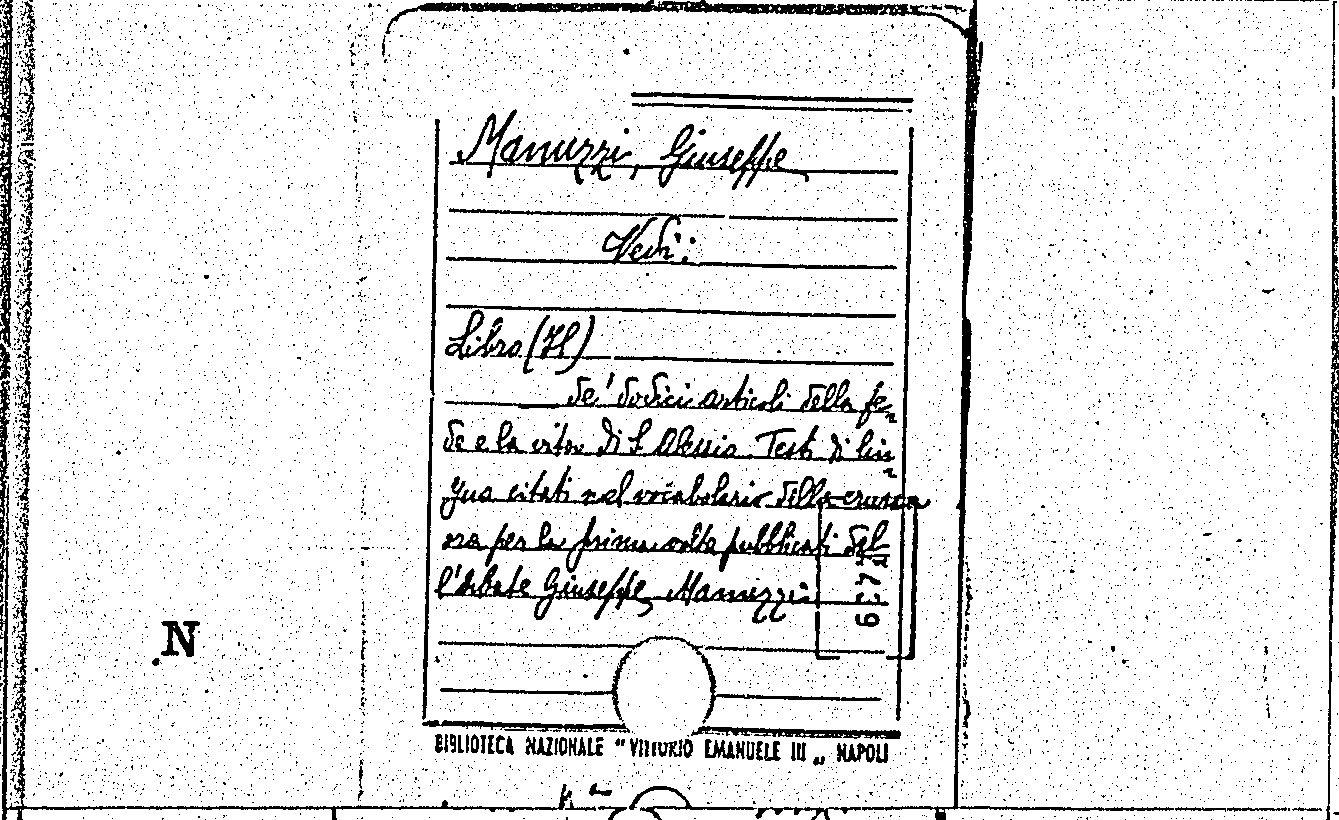 Manuzzi, Giuseppe
Vedi:
Libro (Il)
de' dodici articoli della fe-
de e la vita di S. Alessio. Testi di lin-
gua citati nel vocabolario della crusca
ora per la prima volta pubblicati dal-
l'abate Giuseppe Manuzzi
N
BIBLIOTECA NAZIONALE "VITTORIO EMANUELE III„ NAPOLI